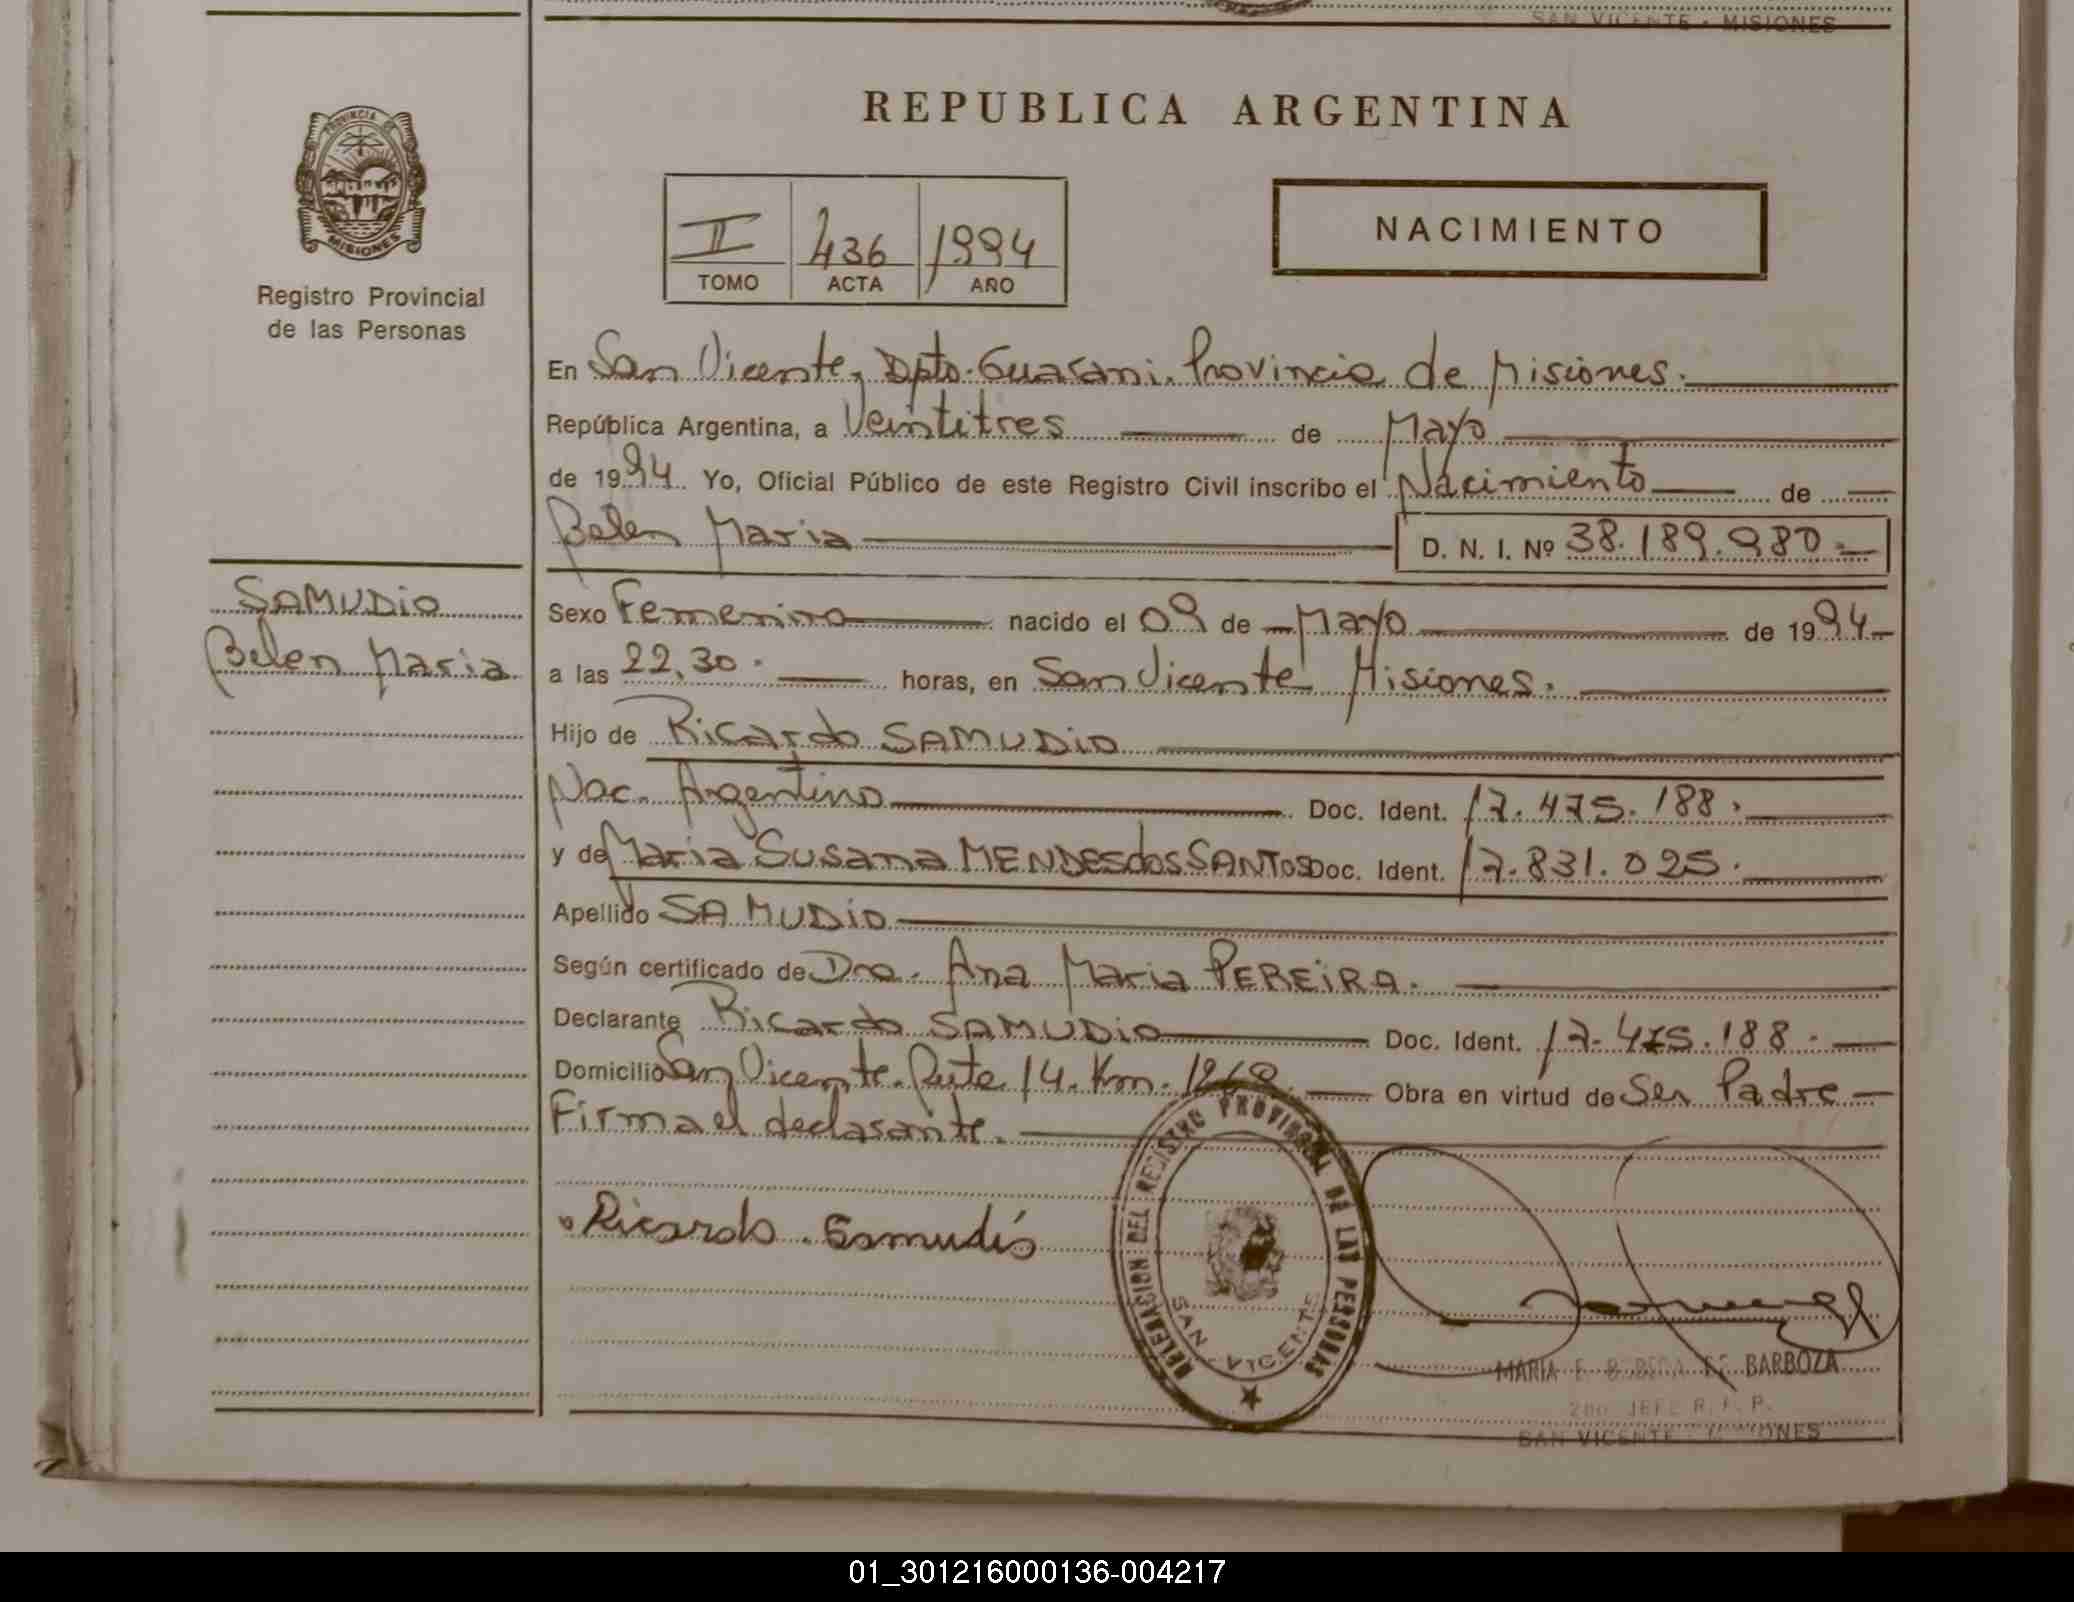 SAN VICENTE - MISIONES
REPUBLICA ARGENTINA
PROVINCIA DE
MISIONES
Registro Provincial
de las Personas
II 436 1994
TOMO ACTA AÑO
NACIMIENTO
En San Vicente, Dpto. Guarani. Provincia de Misiones.
República Argentina, a Veintitres de Mayo
de 1994 Yo, Oficial Público de este Registro Civil inscribo el Nacimiento de
Belen Maria D. N. I. Nº 38.189.980.-
SAMUDIO
Belen Maria
Sexo Femenino nacido el 09 de Mayo de 1994
a las 22,30. horas, en San Vicente Misiones.
Hijo de Ricardo SAMUDIO
Nac. Argentino Doc. Ident. 17.475.188.
y de Maria Susana MENDES dos SANTOS Doc. Ident. 17.831.025.
Apellido SAMUDIO
Según certificado de Dra. Ana Maria PEREIRA.
Declarante Ricardo SAMUDIO Doc. Ident. 17.475.188.
Domicilio San Vicente. Ruta 14. Km. Obra en virtud de Ser Padre
Firma el declarante.
Ricardo Samudio
DELEGACION DEL REGISTRO PROVINCIAL DE LAS PERSONAS
SAN VICENTE
MARIA E. DE BARBOZA
JEFE R. P. P.
SAN VICENTE - MISIONES
01_301216000136-004217